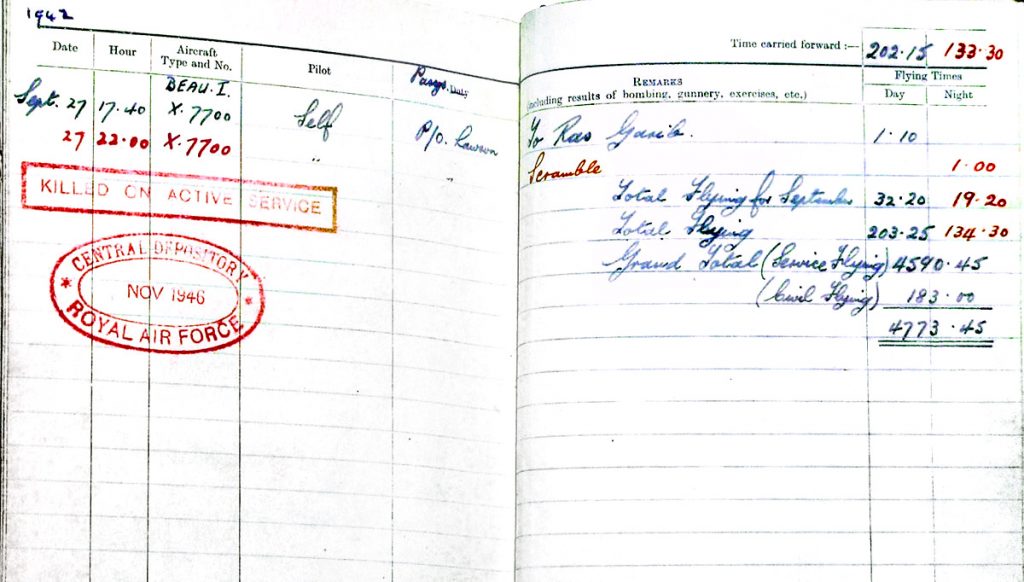 1942
Date Hour Aircraft Type and No. Pilot Passgr. Duty
BEAU. I.
Sept. 27 17.40 X.7700 Self P/O. Lawson
27 22.00 X.7700 " "
KILLED ON ACTIVE SERVICE
CENTRAL DEPOSITORY
NOV 1946
ROYAL AIR FORCE
Time carried forward :— 202.15 133.30
REMARKS
(including results of bombing, gunnery, exercises, etc.)
Flying Times
Day Night
To Ras Garib. 1.10
Scramble 1.00
Total Flying for September 32.20 19.20
Total Flying 203.25 134.30
Grand Total (Service Flying) 4590.45
(Civil Flying) 183.00
4773.45